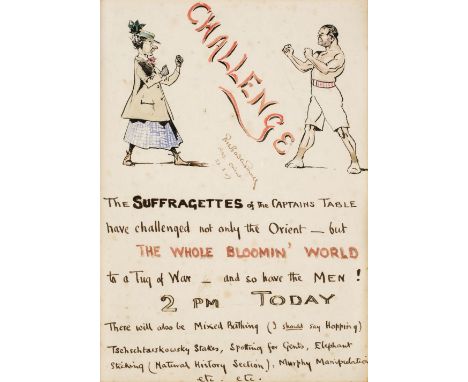 CHALLENGE
THE SUFFRAGETTES of the CAPTAINS TABLE
have challenged not only the Orient — but
THE WHOLE BLOOMIN' WORLD
to a Tug of War — and so have the MEN!
2 PM TODAY
There will also be Mixed Bathing (I should say Hopping)
Stakes, Spotting for Gents, Elephant
Sticking (Natural History Section), Murphy Manipulation
etc. etc.